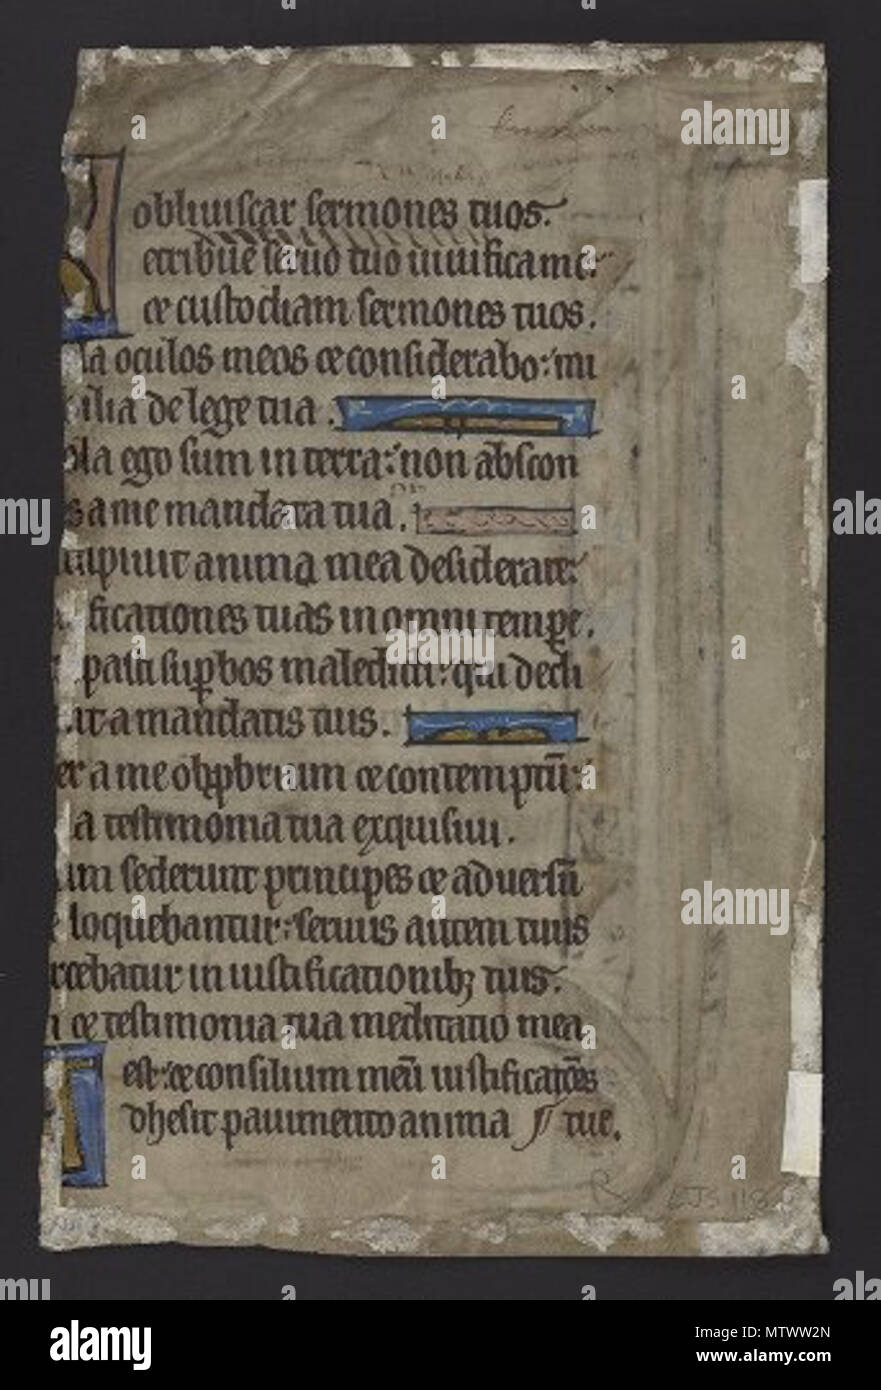 obliuiscar sermones tuos.
etribue seruo tuo uiuifica me:
et custodiam sermones tuos.
la oculos meos et considerabo: mi
ilia de lege tua.
ola ego sum in terra: non abscon
s a me mandata tua.
cupiuit anima mea desiderare:
ificationes tuas in omni tempꝛe.
pasti supbos maledicti: qui decli
nt a mandatis tuis.
er a me obpbrium et contemptū:
a testimonia tua exquisiui.
im sederunt principes et aduersū
e loquebantur: seruus autem tuus
rcebatur in iustificationibꝫ tuis.
n et testimonia tua meditatio mea
est: et consilium meū iustificatōes
dhesit pauimento anima tue.
LJS 118
a
alamy
MTWW2N
www.alamy.com